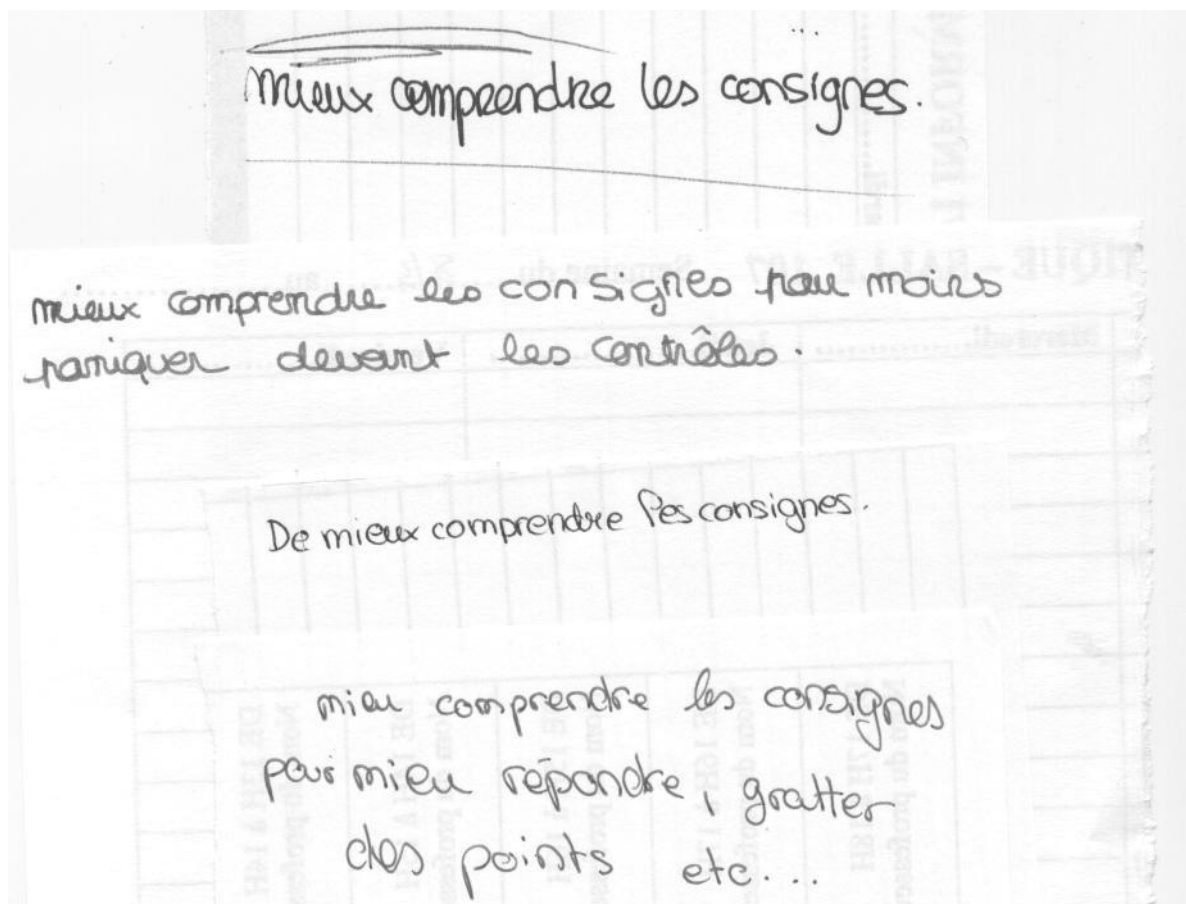 ...
mieux comprendre les consignes.
mieux comprendre les consignes pour moins
paniquer devant les contrôles.
De mieux comprendre les consignes.
mieu comprendre les consignes
pour mieu répondre, gratter
des points etc...